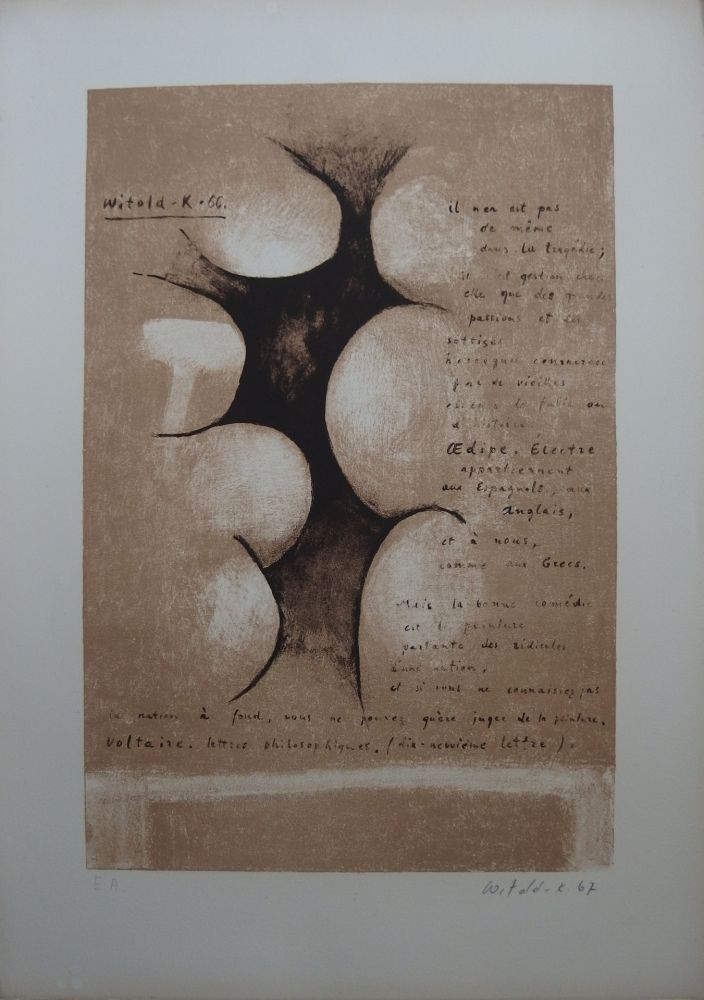 Witold-K.66.
il n'en est pas
de même
dans la tragédie;
est question chez
elle que des grandes
passions et des
sottises
consacrées
par de vieilles
de fable ou
d'histoire
Œdipe, Électre
appartiennent
aux Espagnols, aux
Anglais,
et à nous,
comme aux Grecs.
Mais la bonne comédie
est la peinture
parlante des ridicules
d'une nation,
et si vous ne connaissiez pas
la nation à fond, vous ne pouvez guère juger de la peinture.
Voltaire. lettres philosophiques. (dix-neuvième lettre).
E.A.
Witold-K. 67